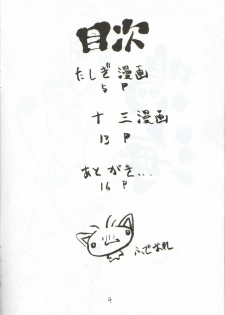 目次
たしぎ漫画
5 P
十三漫画
13 P
あとがき...
16 P
ふでまかれ
4